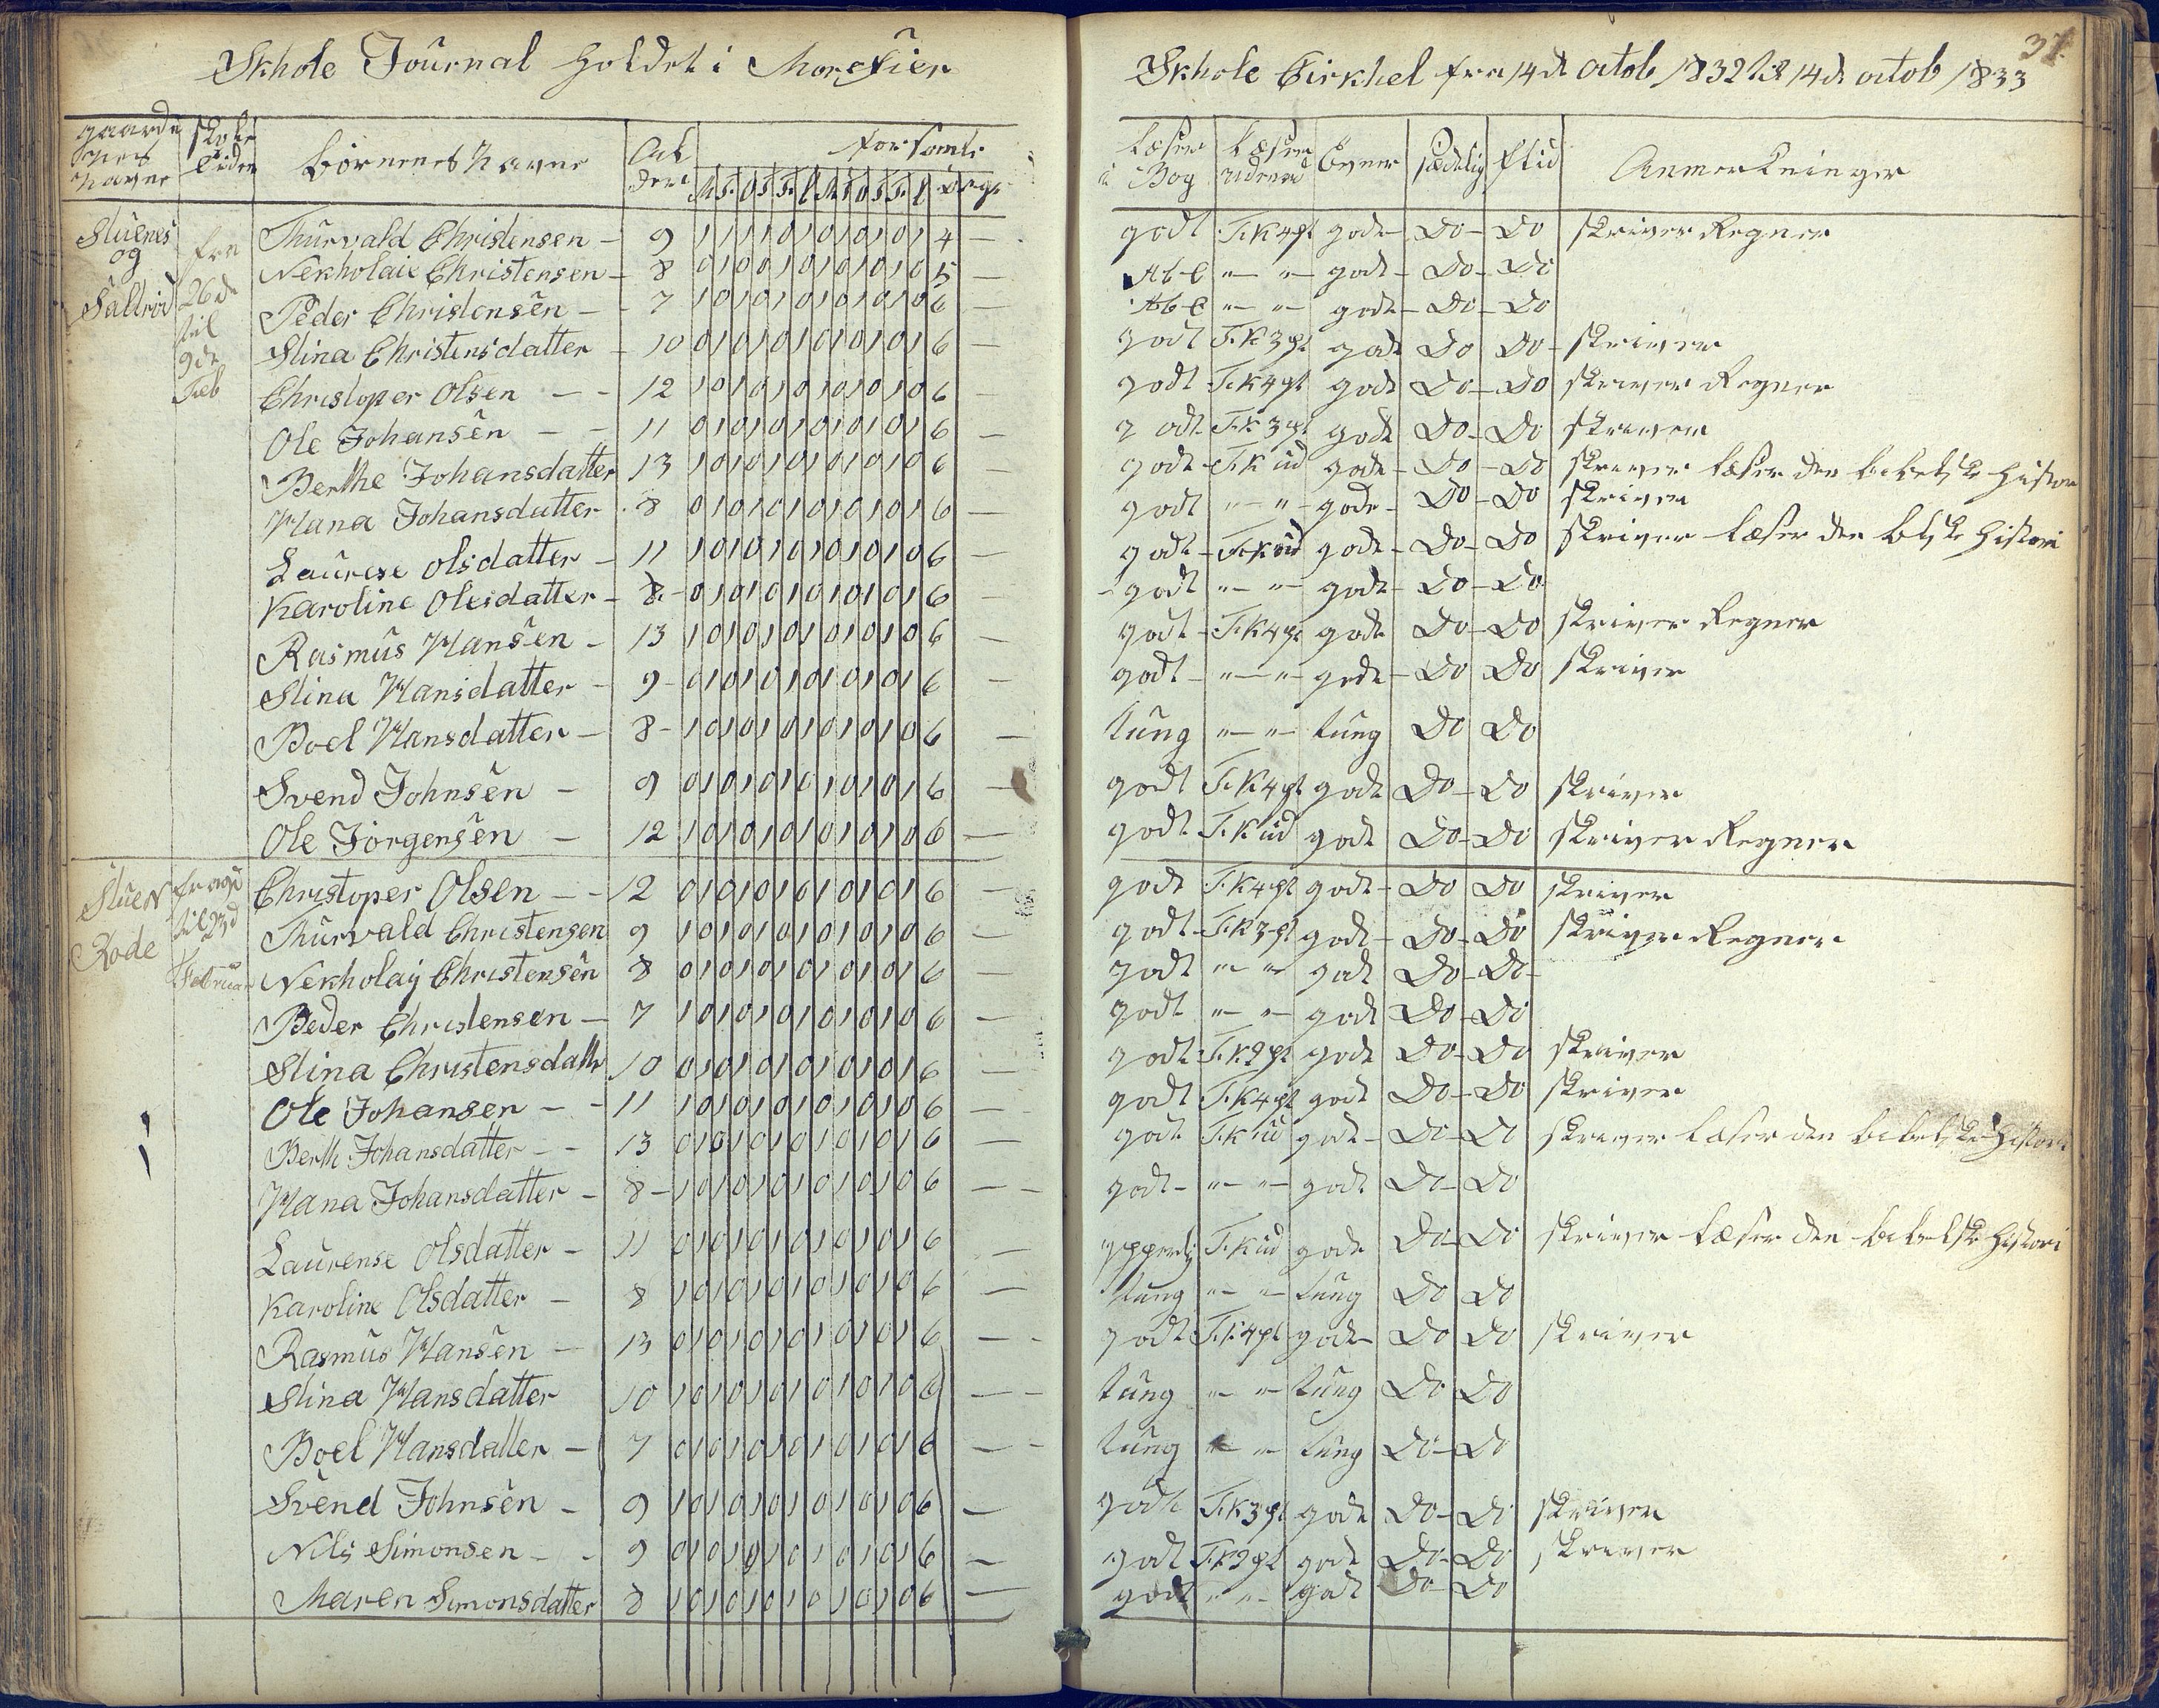 Skhole Journal holdet i Morefier
gaarde
nes
navne
skole
tiden
börnenes navne
Al
der
forsömte
M T O T F L M T O T F L dage
Stuenes
og
Saltröd
fra
26de
til
9de
Feb
Thurvald Christensen - 9 1 1 1 1 0 1 0 1 0 1 0 1 4 -
Nekholaie Christensen - 8 0 1 0 0 1 0 1 0 1 0 1 0 5 -
Peder Christensen - 7 1 0 1 0 1 0 1 0 1 0 1 0 6 -
Stina Christensdatter - 10 0 1 0 1 0 1 0 1 0 1 0 1 6 -
Christoper Olsen - - 12 1 0 1 0 1 0 1 0 1 0 1 0 6 -
Ole Johansen - - 11 0 1 0 1 0 1 0 1 0 1 0 1 6 -
Berthe Johansdatter 13 1 0 1 0 1 0 1 0 1 0 1 0 6 -
Hana Johansdatter 8 0 1 0 1 0 1 0 1 0 1 0 1 6 -
Laurese Olsdatter - 11 1 0 1 0 1 0 1 0 1 0 1 0 6 -
Karoline Olesdatter - 8 0 1 0 1 0 1 0 1 0 1 0 1 6 -
Rasmus Hansen - 13 1 0 1 0 1 0 1 0 1 0 1 0 6 -
Stina Hansdatter - 9 0 1 0 1 0 1 0 1 0 1 0 1 6 -
Boel Hansdatter - 8 1 0 1 0 1 0 1 0 1 0 1 0 6 -
Svend Johnsen - 9 0 1 0 1 0 1 0 1 0 1 0 1 6 -
Ole Jörgensen - 12 1 0 1 0 1 0 1 0 1 0 1 0 6 -
Stuen
Rode
til 23d
Februar
Christoper Olsen - - 12 0 1 0 1 0 1 0 1 0 1 0 1 6 -
Thurvald Christensen 9 1 0 1 0 1 0 1 0 1 0 1 0 6 -
Nekholaij Christensen 8 0 1 0 1 0 1 0 1 0 1 0 1 6 -
Peder Christensen - 7 1 0 1 0 1 0 1 0 1 0 1 0 6 -
Stina Christensdattr 10 0 1 0 1 0 1 0 1 0 1 0 1 6 -
Ole Johansen - - 11 1 0 1 0 1 0 1 0 1 0 1 0 6 -
Berth Johansdatter - - 13 0 1 0 1 0 1 0 1 0 1 0 1 6 -
Hana Johansdatter - 8 1 0 1 0 1 0 1 0 1 0 1 0 6 -
Laurense Olsdatter - 11 0 1 0 1 0 1 0 1 0 1 0 1 6 -
Karoline Olsdatter - 8 1 0 1 0 1 0 1 0 1 0 1 0 6 -
Rasmus Hansen - 13 0 1 0 1 0 1 0 1 0 1 0 1 6 -
Stina Hansdatter 10 1 0 1 0 1 0 1 0 1 0 1 0 6 -
Boel Hansdatter - 7 0 1 0 1 0 1 0 1 0 1 0 1 6 -
Svend Johnsen - 9 1 0 1 0 1 0 1 0 1 0 1 0 6 -
Nils Simonsen - - 9 0 1 0 1 0 1 0 1 0 1 0 1 6 -
Maren Simonsdatter 8 1 0 1 0 1 0 1 0 1 0 1 0 6 -
37
Skhole Cirkhel fra 14de octob 1832 til 14de octob 1833
læser
i Bog
læser
udenad
Evner
sædelig
flid
Anmerkninger
godt T.K 4 pt gode - Do - Do skriver Regner
Ab-C " - " - gode - Do - Do
Ab-C " - " - gode - Do - Do
godt T.K 3 pt gode Do Do - skriver
godt T.K 4 pt gode Do - Do skriver Regner
godt T.K 3 pt gode Do - Do skriver
godt - T.K ud gode - Do - Do skriver læser den bibelske histori
godt " - " - gode - Do - Do skriver
godt - T.K ud gode - Do - Do skriver læser den histori
godt " - " - gode - Do - Do
godt - T.K 4 pt gode Do - Do skriver Regner
godt - " - " - gode - Do Do skriver
tung " - " - tung Do Do
godt T.K 4 pt gode Do - Do skriver
godt T.K ud gode Do - Do skriver Regner
godt T.K 4 pt gode - Do Do skriver
godt - T.K 3 pt gode - Do - Do skriver Regner
godt " - " gode Do - Do -
godt " - " - gode Do - Do
godt T.K 2 pt gode Do - Do skriver
godt T.K 4 pt gode Do - Do skriver
godt T.K ud gode - Do - Do skriver læser den bibelske histori
godt - " - " - gode Do - Do
ypperlig T.K ud gode Do - Do skriver læser den bibelske histori
tung " - " - tung Do Do
godt T.K 4 pt gode - Do Do skriver
tung " - " - tung Do Do
tung " - " - tung Do - Do
godt T.K 3 pt gode Do - Do skriver
godt T.K 2 pt gode Do - Do skriver
godt " - " - gode Do - Do